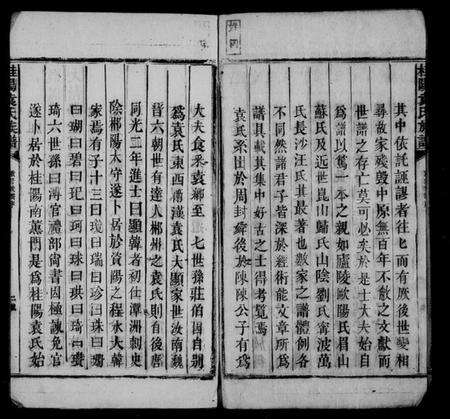 其中依託誣謬者往往而有厥後世變相
尋故家殘毀中原無百年不散之文獻而
世譜之存亡莫可必矣於是士大夫始自
為譜以篤一本之親如廬陵歐陽氏眉山
蘇氏及近世崑山歸氏山陰劉氏甯波萬
氏長沙汪氏其最著也數家之譜體例各
不同然諸君子皆深於經術能文章所為
譜具載其集中好古之士得考覽焉
袁氏系出於周封緯後於陳陳公子有為
大夫食釆袁鄉至七世孫莊伯因自別
為袁氏東西漢袁氏大顯家世汝南魏
晉六朝世有達人郴州之袁氏則自後唐
同光二年進士曰顯韓者初仕潭洲刺史
除郴陽太守遂卜居於資陽之程水大韓
家焉有子十三曰瓊曰瑞曰珍曰珠曰珊
曰瑚曰碧曰玘曰珂曰珠曰珙曰琦曰璣
琦六世孫曰溥官禮部尚書因極諫免官
遂卜居於桂陽南蕙門是爲桂陽袁氏始